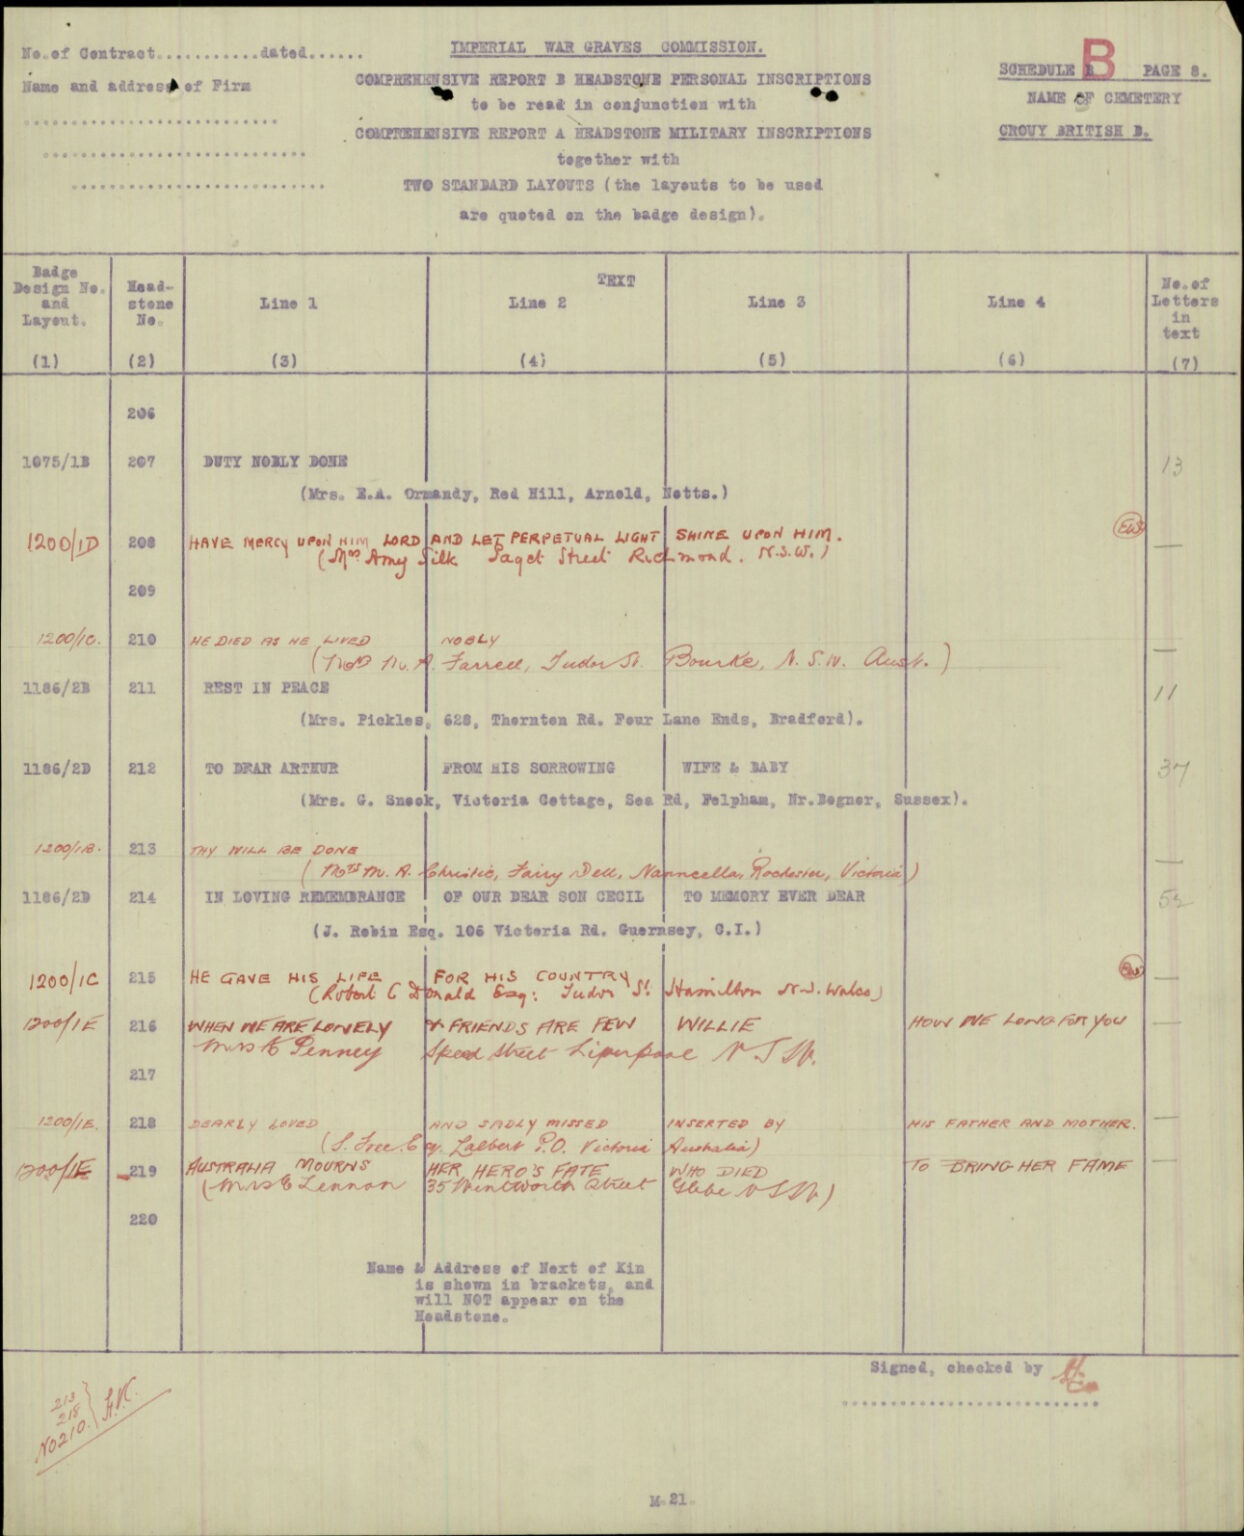 No. of Contract............dated......
IMPERIAL WAR GRAVES COMMISSION.
SCHEDULE B B PAGE 8.
Name and address of Firm
COMPREHENSIVE REPORT B HEADSTONE PERSONAL INSCRIPTIONS
NAME OF CEMETERY
to be read in conjunction with
COMPREHENSIVE REPORT A HEADSTONE MILITARY INSCRIPTIONS
CROUY BRITISH B.
together with
TWO STANDARD LAYOUTS (the layouts to be used
are quoted on the badge design).
Badge Design No. and Layout.
Head-stone No.
TEXT
Line 1
Line 2
Line 3
Line 4
No. of Letters in text
(1) (2) (3) (4) (5) (6) (7)
206
1075/1B 207 DUTY NOBLY DONE 13
(Mrs. E.A. Ormandy, Red Hill, Arnold, Notts.)
1200/1D 208 HAVE MERCY UPON HIM LORD AND LET PERPETUAL LIGHT SHINE UPON HIM. —
(Mrs Amy Silk Paget Street Richmond. N.S.W.)
209
1200/1C. 210 HE DIED AS HE LIVED NOBLY —
(Mrs M. A. Farrell, Tudor St. Bourke, N.S.W. Aust.)
1186/2B 211 REST IN PEACE 11
(Mrs. Pickles, 628, Thornton Rd. Four Lane Ends, Bradford).
1186/2D 212 TO DEAR ARTHUR FROM HIS SORROWING WIFE & BABY 37
(Mrs. G. Snook, Victoria Cottage, Sea Rd, Felpham, Nr.Bognor, Sussex).
1200/1B. 213 THY WILL BE DONE —
(Mrs M. A. Christie, Fairy Dell, Nanneella, Rochester, Victoria)
1186/2D 214 IN LOVING REMEMBRANCE OF OUR DEAR SON CECIL TO MEMORY EVER DEAR 52
(J. Robin Esq. 106 Victoria Rd. Guernsey, C.I.)
1200/1C 215 HE GAVE HIS LIFE FOR HIS COUNTRY —
(Robert C Donald Esq: Tudor St. Hamilton N.S. Wales)
1200/1E 216 WHEN WE ARE LONELY & FRIENDS ARE FEW WILLIE HOW WE LONG FOR YOU —
Mrs E Penney Speed Street Liverpool N S W.
217
1200/1E. 218 DEARLY LOVED AND SADLY MISSED INSERTED BY HIS FATHER AND MOTHER. —
(S. Free. Esq. Lalbert P.O. Victoria Australia)
1200/1E 219 AUSTRALIA MOURNS HER HERO'S FATE WHO DIED TO BRING HER FAME —
(Mrs E Lennon 35 Wentworth Street Glebe N S W)
220
Name & Address of Next of Kin
is shown in brackets, and
will NOT appear on the
Headstone.
Signed, checked by
213
218
No 210.
M.21.